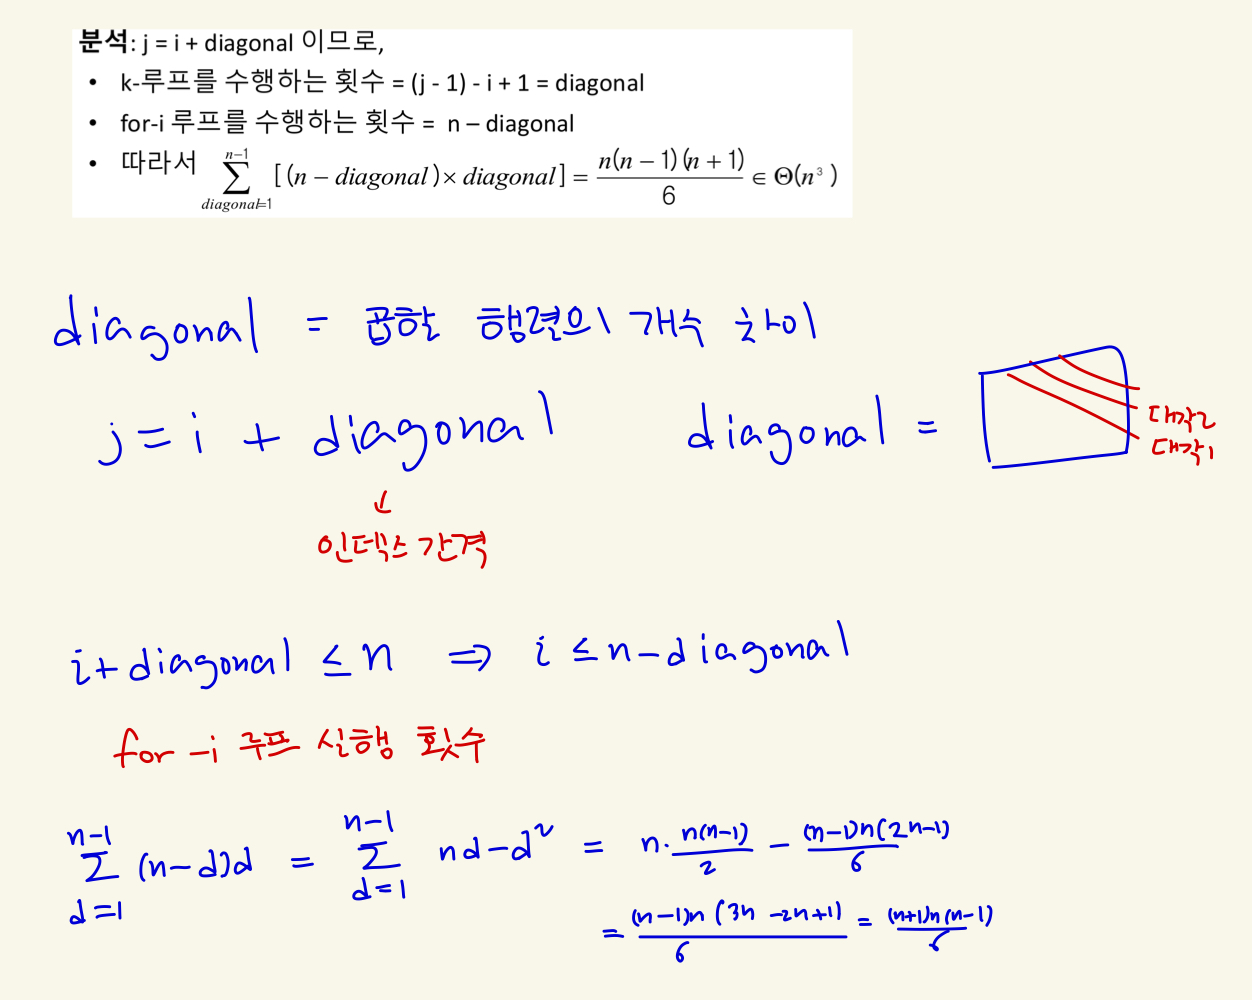 분석: j = i + diagonal 이므로,
• k-루프를 수행하는 횟수 = (j - 1) - i + 1 = diagonal
• for-i 루프를 수행하는 횟수 = n – diagonal
• 따라서 \sum_{diagonal=1}^{n-1} [(n − diagonal) × diagonal] = \frac{n(n − 1)(n + 1)}{6} ∈ Θ(n³)
diagonal = 곱할 행렬의 개수 차이
j = i + diagonal
diagonal =
대각2
대각1
↓
인덱스 간격
i + diagonal ≤ n ⇒ i ≤ n − diagonal
for -i 루프 실행 횟수
\sum_{d=1}^{n-1} (n−d)d = \sum_{d=1}^{n-1} nd − d² = n · \frac{n(n−1)}{2} − \frac{(n−1)n(2n−1)}{6}
= \frac{(n−1)n(3n −2n+1)}{6} = \frac{(n+1)n(n−1)}{6}